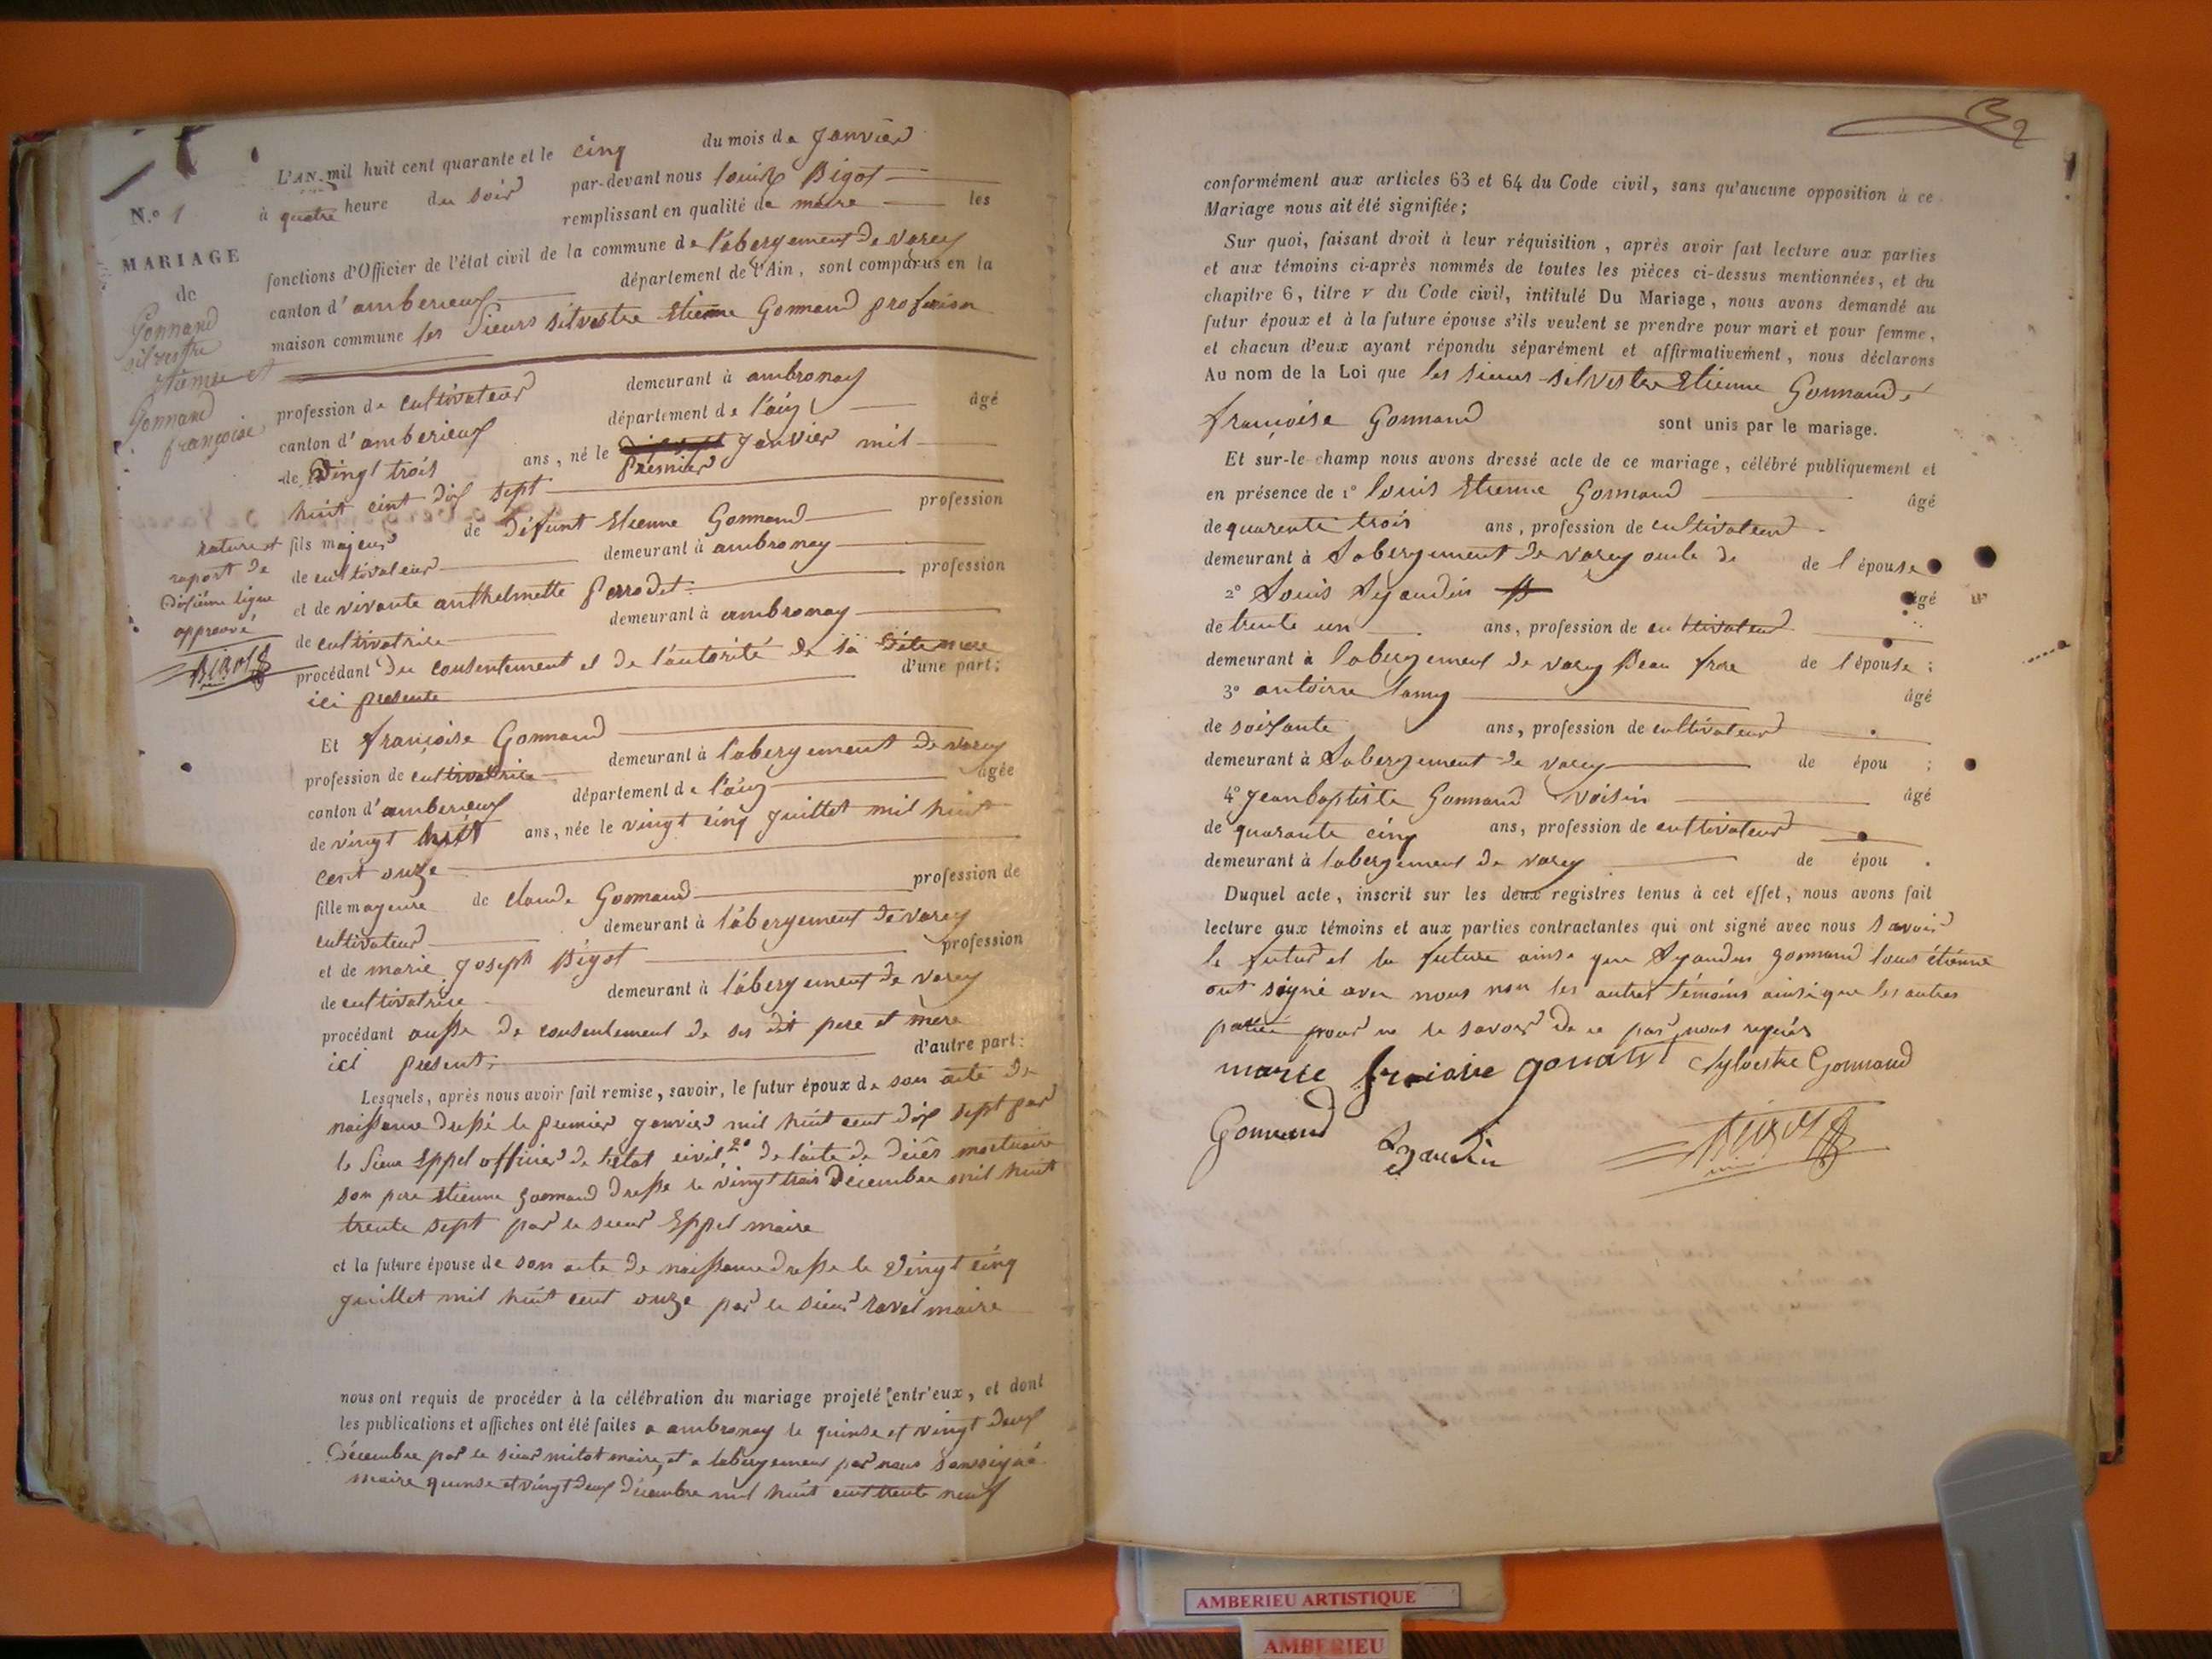 N.° 1
MARIAGE
de
Gonnand
silvestre
étienne et
Gonnand
françoise
rature et
raport de
dixième ligne
approuvé
Bigot
L'AN mil huit cent quarante et le cinq du mois de Janvier
à quatre heure du soir par-devant nous louis Bigot
remplissant en qualité de maire les
fonctions d'Officier de l'état civil de la commune de l'abergement de varey
canton d' amberieux département de l'Ain, sont comparus en la
maison commune les Sieurs silvestre Etienne Gonnand profession
profession de cultivateur demeurant à ambronay
canton d' amberieux département de l'ain âgé
de vingt trois ans, né le premier Janvier mil
huit cent dix sept
fils majeur de défunt Etienne Gonnand profession
de cultivateur demeurant à ambronay
et de vivante anthelmette perrodet profession
de cultivatrice demeurant à ambronay
procédant du consentement et de l'autorité de sa dite mere
ici presente d'une part;
Et françoise Gonnand
profession de cultivatrice demeurant à l'abergement de varey
canton d' amberieux département de l'ain âgée
de vingt huit ans, née le vingt cinq juillet mil huit
cent onze
fille mageure de claude Gonnand profession de
cultivateur demeurant à l'abergement de varey
et de marie joseph Bigot profession
de cultivatrice demeurant à l'abergement de varey
procédant ausse de consentement de ses dit pere et mère
ici présent d'autre part:
Lesquels, après nous avoir fait remise, savoir, le futur époux de son acte de
naissance dressé le premier janvier mil huit cent dix sept par
le sieur Eppel officier de l'etat civil 2° de l'acte de décés mortuaire
son pere etienne gonnand dresse le vingt trois décembre mil huit
trente sept par le sieur Eppel maire
et la future épouse de son acte de naissance dresse le vingt cinq
juillet mil huit cent onze par le sieur ravel maire
nous ont requis de procéder à la célébration du mariage projeté entr'eux, et dont
les publications et affiches ont été faites a ambronay le quinse et vingt deux
décembre par le sieur milot maire, et a labergement par nous soussigné
maire quinse et vingt deux décembre mil huit cent trente neuf
32
conformément aux articles 63 et 64 du Code civil, sans qu'aucune opposition à ce
Mariage nous ait été signifiée;
Sur quoi, faisant droit à leur réquisition, après avoir fait lecture aux parties
et aux témoins ci-après nommés de toutes les pièces ci-dessus mentionnées, et du
chapitre 6, titre V du Code civil, intitulé Du Mariage, nous avons demandé au
futur époux et à la future épouse s'ils veulent se prendre pour mari et pour femme,
et chacun d'eux ayant répondu séparément et affirmativement, nous déclarons
Au nom de la Loi que les sieurs silvestre Etienne Gonnand, et
françoise Gonnand sont unis par le mariage.
Et sur-le-champ nous avons dressé acte de ce mariage, célébré publiquement et
en présence de 1° louis Etienne Gonnand âgé
de quarente trois ans, profession de cultivateur
demeurant à Labergement de varey oncle de de l'épouse
2° Louis Ayaudin âgé
de trente un ans, profession de cultivateur
demeurant à labergement de varey Beau frere de l'épouse;
3° antoine lamy âgé
de soixante ans, profession de cultivateur
demeurant à Labergement de varey de épou ;
4° Jean baptiste Gonnand voisin âgé
de quarante cinq ans, profession de cultivateur
demeurant à labergement de varey de épou .
Duquel acte, inscrit sur les deux registres tenus à cet effet, nous avons fait
lecture aux témoins et aux parties contractantes qui ont signé avec nous savoir
le futur et la future ainse que Ayaudin gonnand louis étienne
ont signé avec nous non les autres témoins ainsi que les autres
partie pour ne le savoir de ce par nous requis
marie Sylvestre Gonnand
Gonnand Ayaudin Bigot
AMBERIEU ARTISTIQUE
AMBERIEU